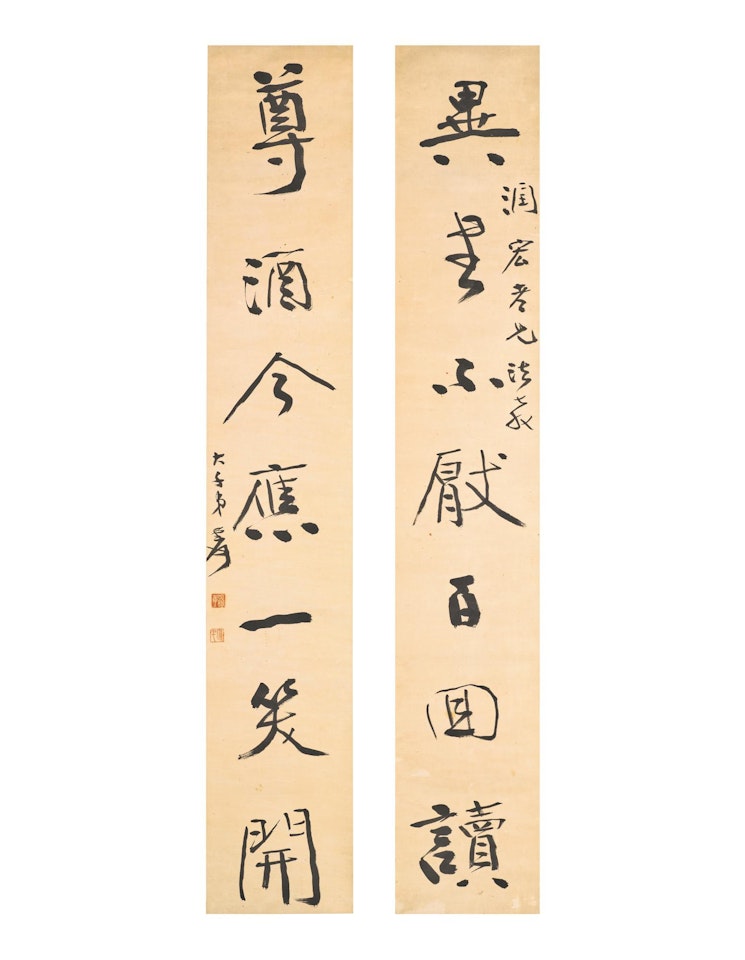 異書不厭百回讀
潤宏老兄法教
尊酒今應一笑開
大千弟爰